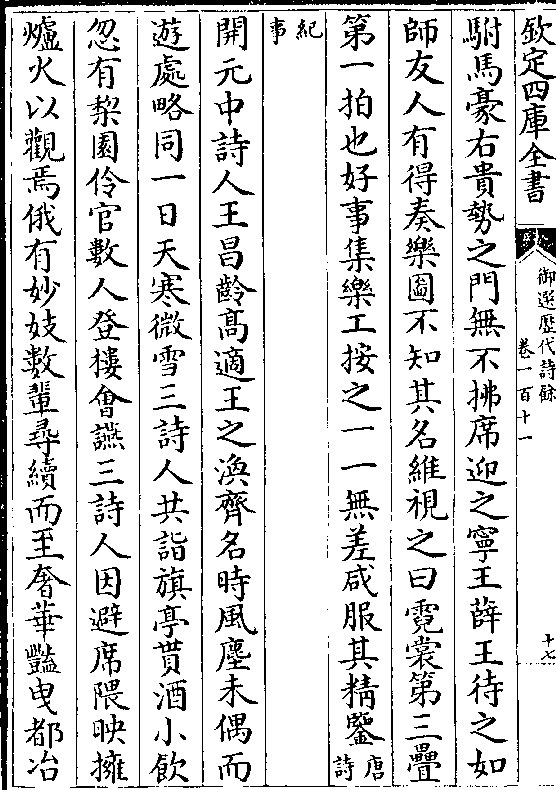 欽定四庫全書
御選歷代詩餘
卷一百十一
十七
駙馬豪右貴勢之門無不拂席迎之寧王薛王待之如
師友人有得奏樂圖不知其名維視之曰霓裳第三疊
第一拍也好事集樂工按之一一無差咸服其精鑒唐詩
紀事
開元中詩人王昌齡高適王之渙齊名時風塵未偶而
遊處略同一日天寒微雪三詩人共詣旗亭貰酒小飲
忽有棃園伶官數人登樓會讌三詩人因避席隈映擁
爐火以觀焉俄有妙妓數輩尋續而至奢華豔曳都冶